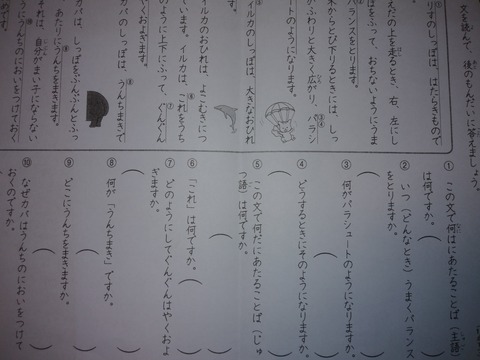 文を読んで、後のもんだいに答えましょう。
りすのしっぽは、はたらきもので
えだの上を走るとき、右、左にし
ぽをふって、おちないようにうま
バランスをとります。
木からとび下りるときには、しっ
がふわりと大きく広がり、パラシ
ートのようになります。
イルカのしっぽは、大きなおひれ
イルカのおひれは、よこむきにつ
います。イルカは、これをうち
のように上下にふって、ぐんぐん
くおよぎます。
カバのしっぽは、うんちまきで
カバは、しっぽをぶんぶんとふっ
あたりにうんちをまきます。
それは、自分がまい子にならない
うにうんちのにおいをつけておく
めです。
① この文で何はにあたることば（主語）
は何ですか。
② いつ（どんなとき）うまくバランス
をとりますか。
③ 何がパラシュートのようになりますか。
④ どうするときにそのようになりますか。
⑤ この文で何だにあたることば（じゅ
つ語）は何ですか。
⑥ 「これ」は何ですか。
⑦ どのようにしてぐんぐんはやくおよ
ぎますか。
⑧ 何が「うんちまき」ですか。
⑨ どこにうんちをまきますか。
⑩ なぜカバはうんちのにおいをつけて
おくのですか。